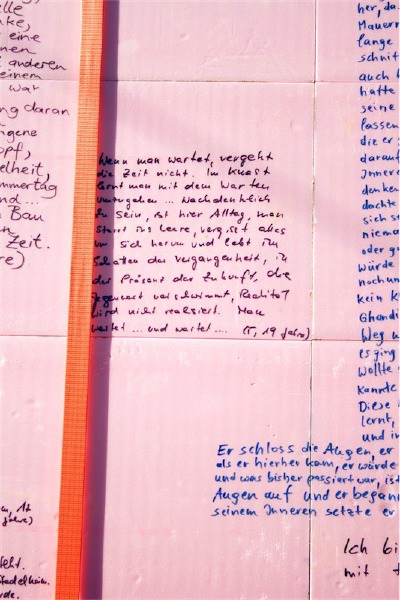 elle
eine
nen
anderen
einem
war
ng daran
gene
opf,
elheit,
mmertag
nd...
n Bau
n
Zeit.
re)
Wenn man wartet, vergeht
die Zeit nicht. Im Knast
lernt man mit dem Warten
umzugehen ... Nachdenklich
zu sein, ist hier Alltag, man
starrt ins Leere, vergisst alles
um sich herum und lebt im
Schatten der Vergangenheit, in
der Präsenz der Zukunft, die
Gegenwart verschwimmt, Realität
wird nicht realisiert. Man
wartet ... und wartet .... (T, 19 Jahre)
her, da
Mauern
lange
schnit
auch
hatte
seine
lassen
die er
darauf
Innere
denken
dachte
sich s
niema
oder g
würde
noch un
kein K
Ghandi
Weg w
es ging
wollte
kannte
Diese
lernt,
und in
Er schloss die Augen, er
als er hierher kam, er würde
und was bisher passiert war, ist
Augen auf und er begann
seinem Inneren setzte er
Ich bi
mit
n, 17
Jahre)
teht.
Stadelheim.
rde.